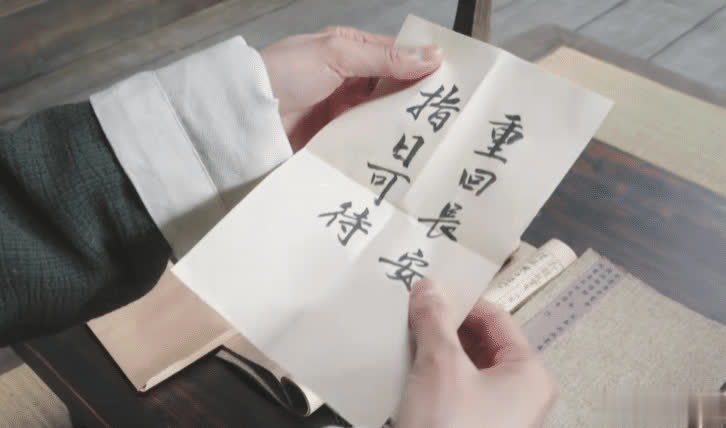 重回長安
指日可待